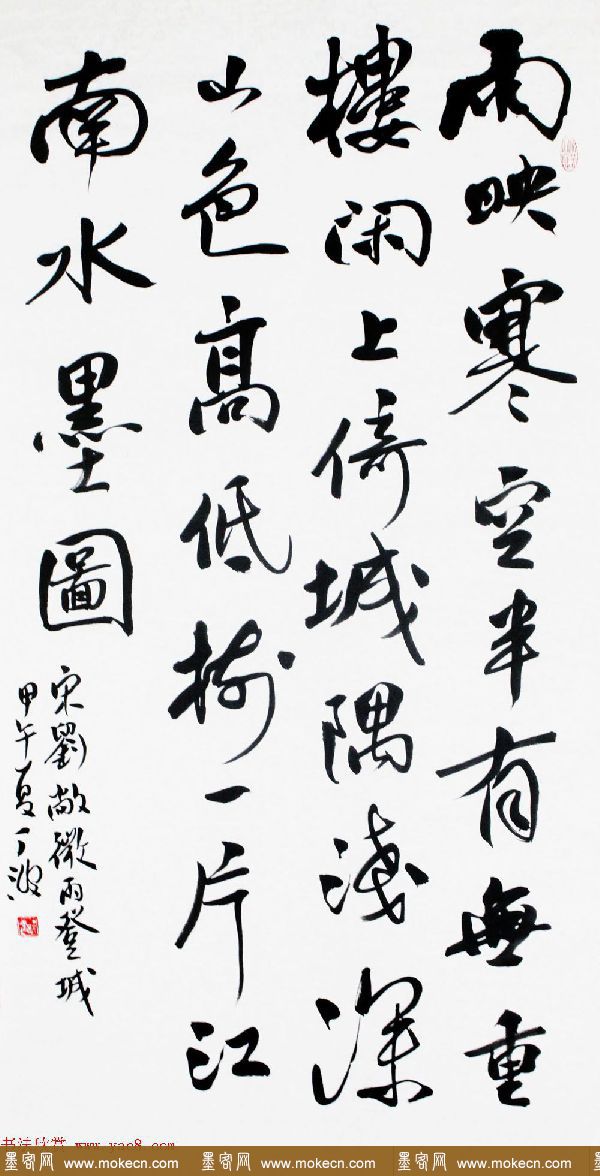 雨映寒空半有無重
樓閑上倚城隅淺深
山色高低樹一片江
南水墨圖
宋劉敞微雨登城
甲午夏丁波
书法欣赏 www.yac8.com
墨客网 www.mokecn.com 墨客网 www.mokecn.com 墨客网 www.mokecn.com